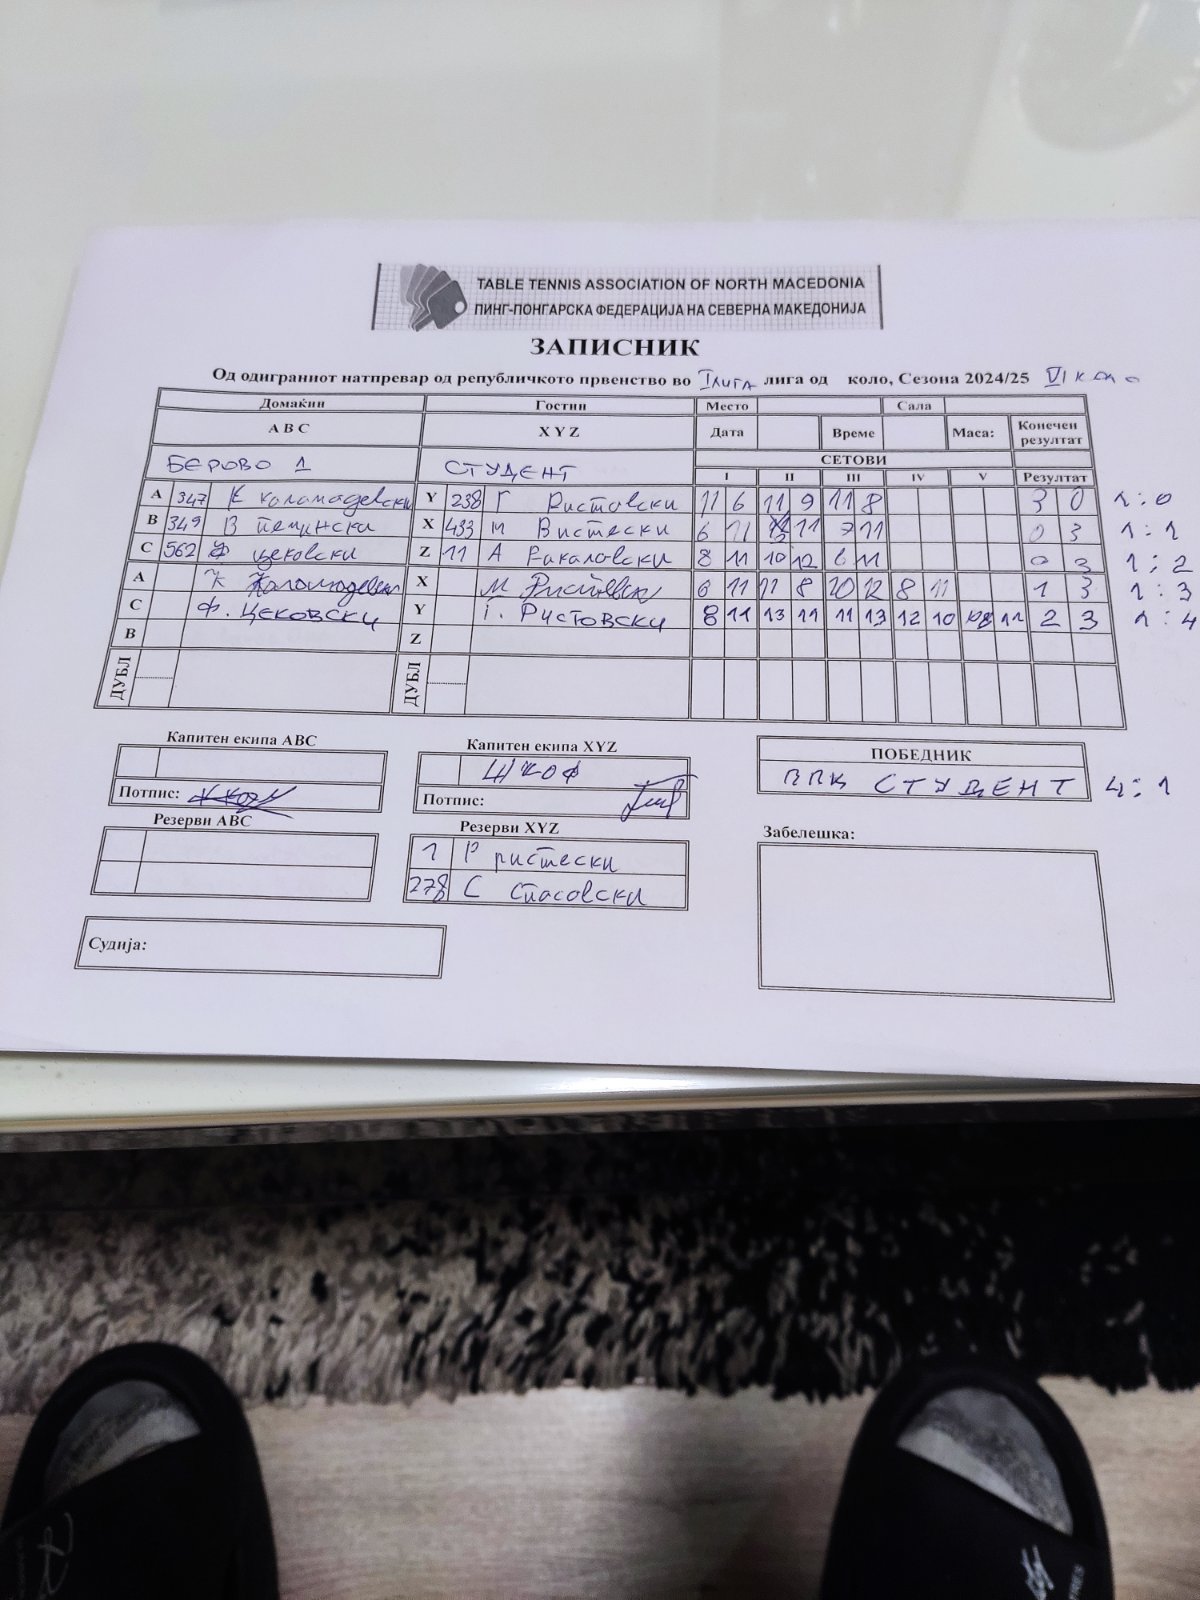 TABLE TENNIS ASSOCIATION OF NORTH MACEDONIA
ПИНГ-ПОНГАРСКА ФЕДЕРАЦИЈА НА СЕВЕРНА МАКЕДОНИЈА
ЗАПИСНИК
Од одиграниот натпревар од републичкото првенство во I ЛИГА лига од коло, Сезона 2024/25 VI коло
Домаќин Гости Место Сала
A B C X Y Z Дата Време Маса: Конечен резултат
БЕРОВО 1 СТУДЕНТ СЕТОВИ
I II III IV V Резултат
A 347 К Коламадевски Y 238 Г Ристовски 11 6 11 9 11 8 3 0 1:0
B 349 В X 433 М 6 11 11 7 11 0 3 1:1
C 562 Ф Цековски Z 11 А 8 11 10 12 6 11 0 3 1:2
A К X М 6 11 11 8 10 12 8 11 1 3 1:3
C Ф. Цековски Y Г. Ристовски 8 11 13 11 11 13 12 10 11 2 3 1:4
B Z
ДУБЛ ДУБЛ
Капитен екипа ABC Капитен екипа XYZ ПОБЕДНИК
ШКОФ ППК СТУДЕНТ 4:1
Потпис: Потпис:
Резерви ABC Резерви XYZ Забелешка:
1 Р Ристески
278 С Спасовски
Судија: